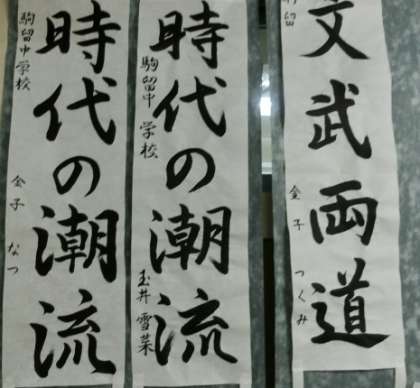 文武両道
金子 つくみ
時代の潮流
駒留中学校
玉井 雪菜
時代の潮流
駒留中学校
金子 なつ